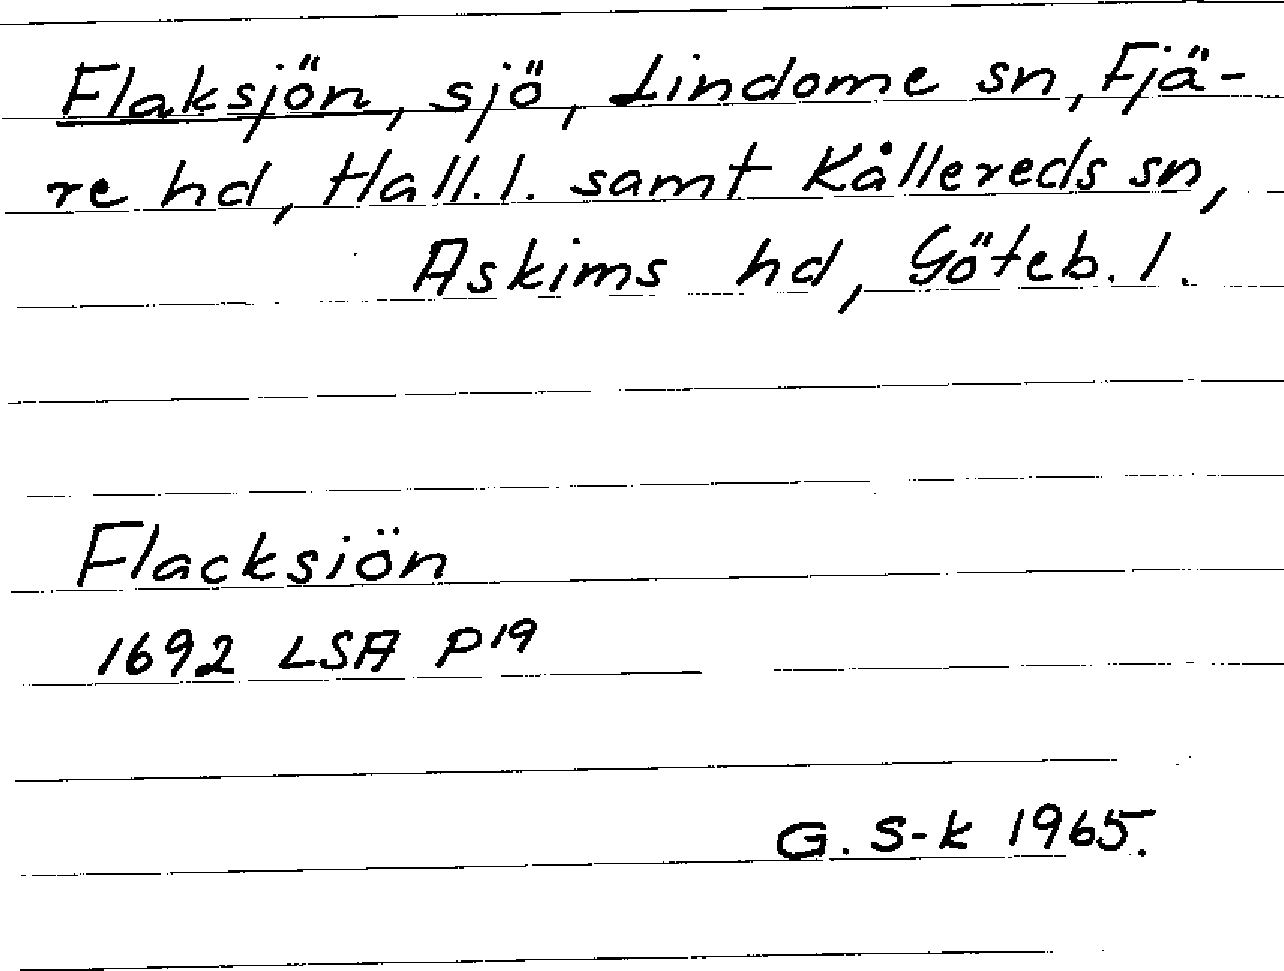 Flaksjön, sjö, Lindome sn, Fjä-
re hd, Hall. l. samt Kållereds sn,
Askims hd, Göteb. l.
Flacksiön
1692 LSA P19
G. S-k 1965.